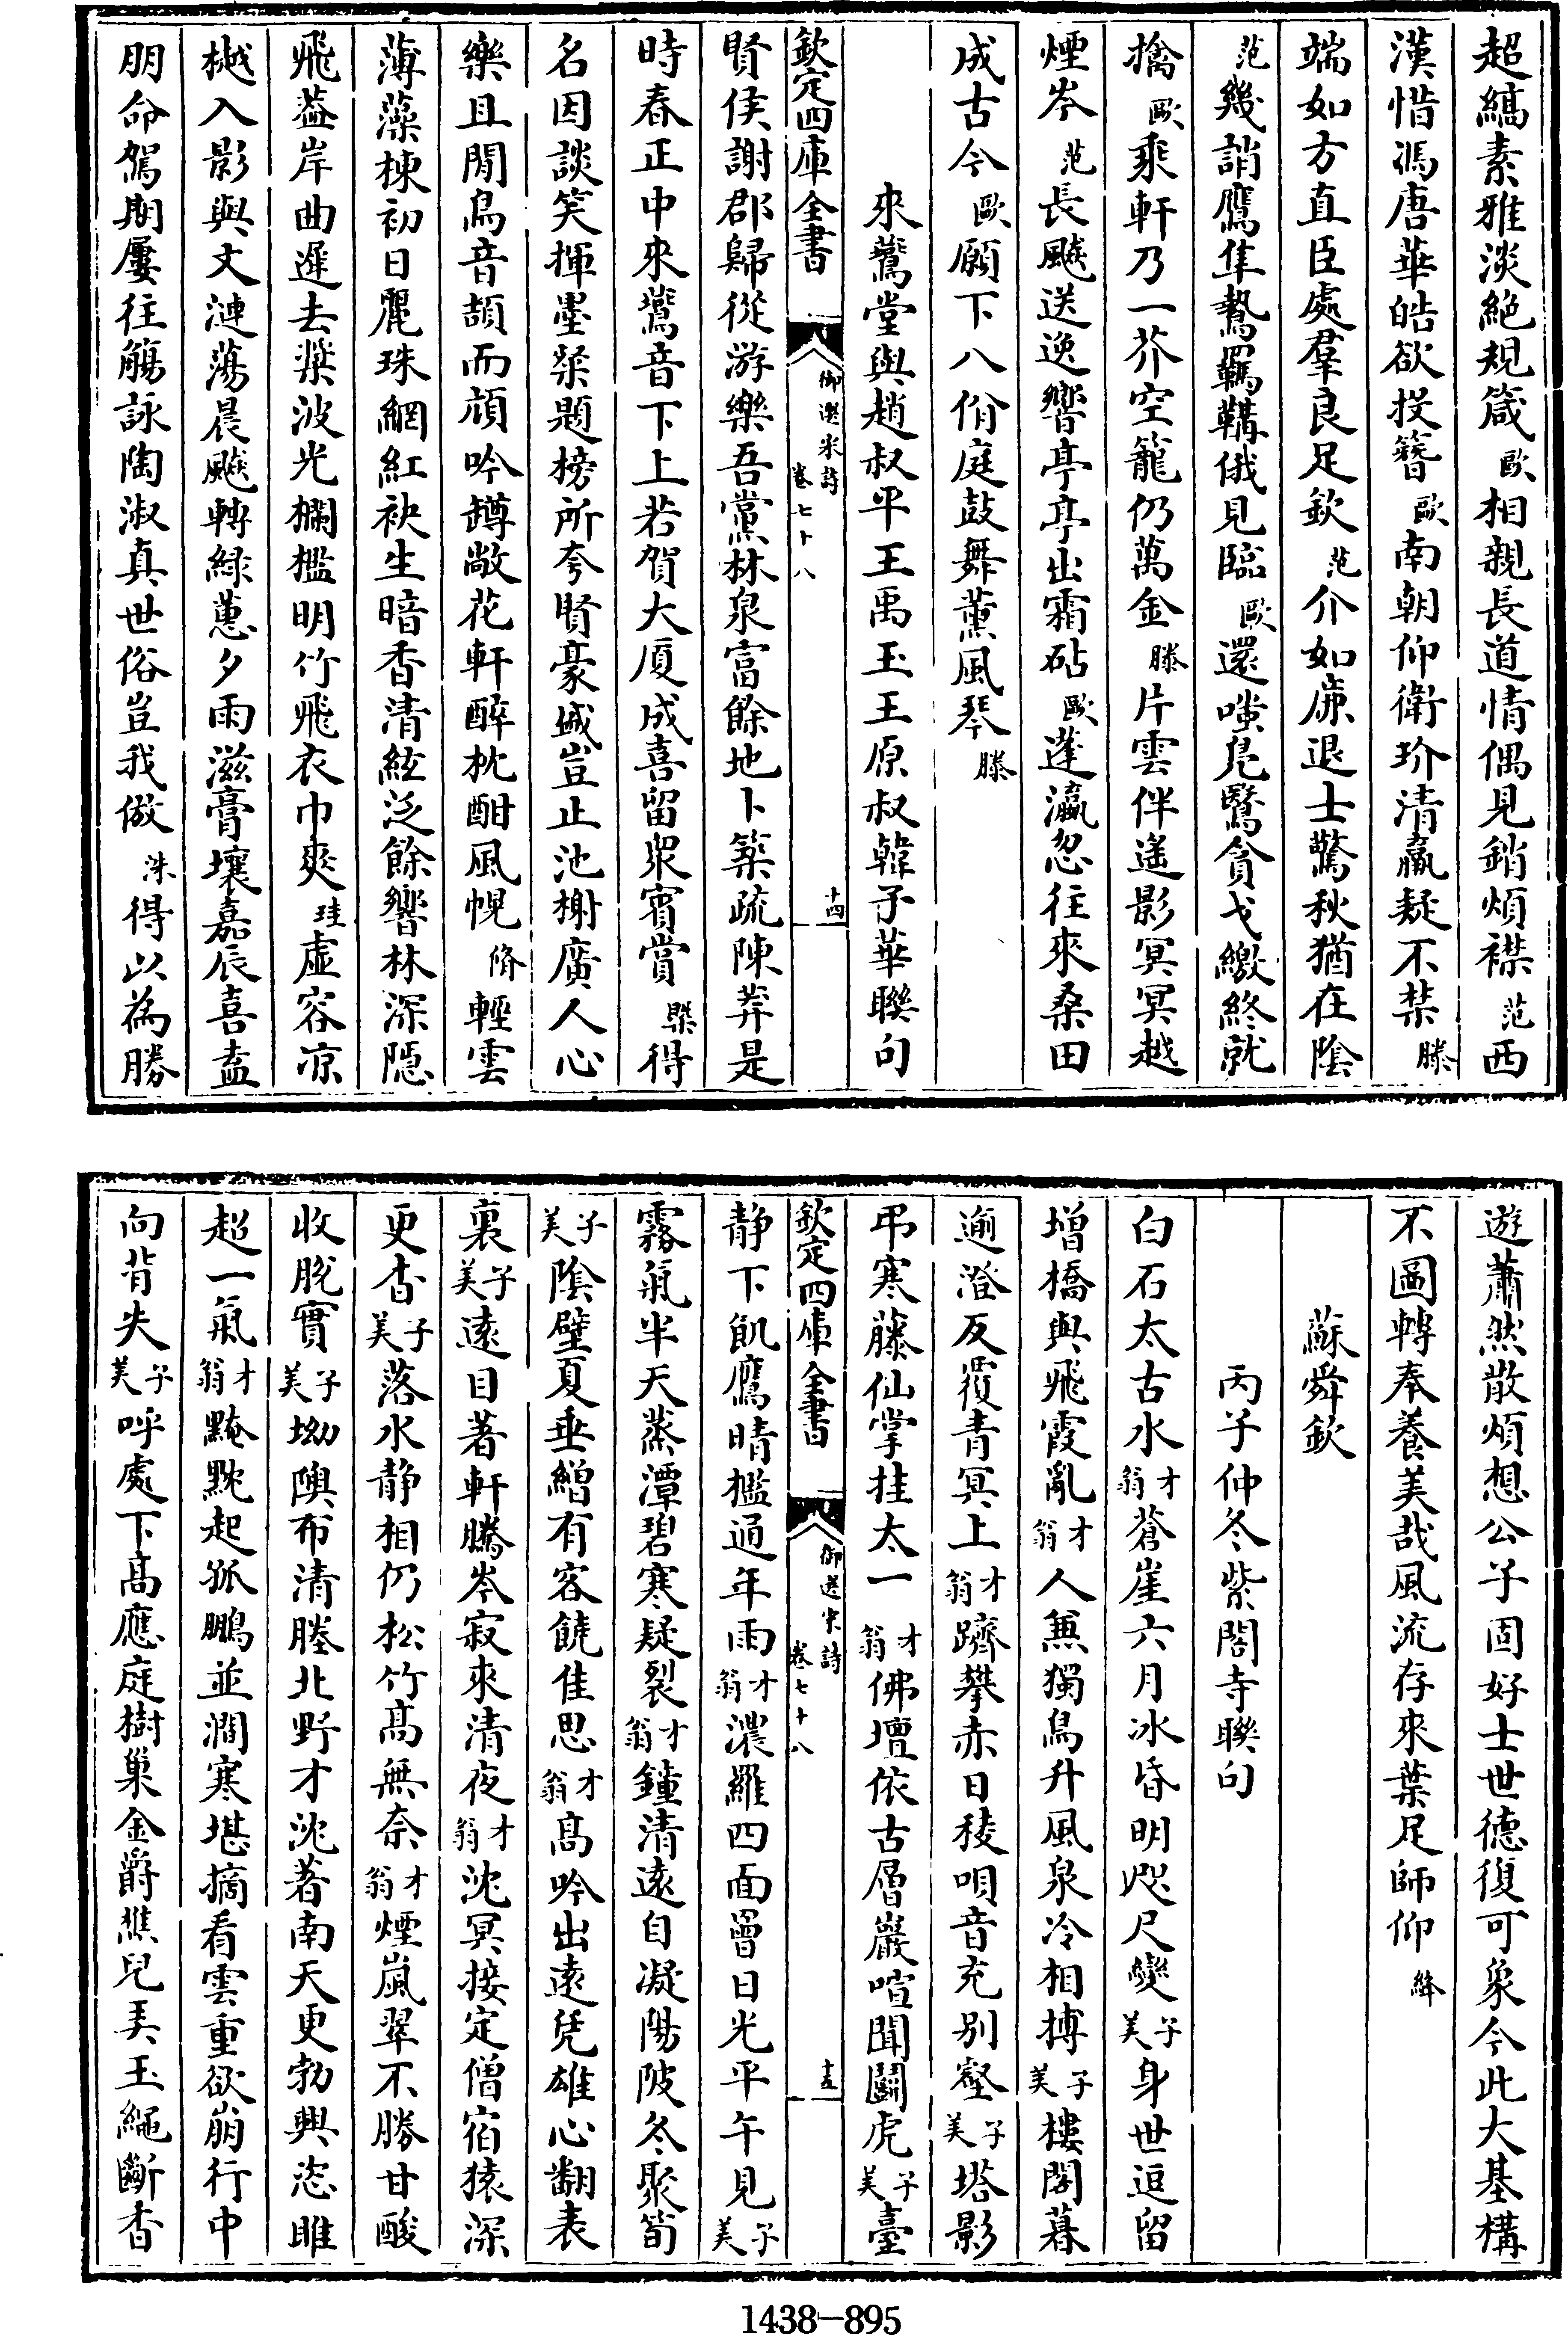 超縞素雅淡絶規箴歐相親長道情偶見銷煩襟范西
漢惜馮唐華皓欲投簪歐南朝仰衛玠清羸疑不禁滕
端如方直臣處羣良足欽范介如㢘退士驚秋猶在陰
范幾誚鷹隼鷙羈鞲俄見臨歐還嗤鳬鷖貪弋繳終就
擒歐乘軒乃一芥空籠仍萬金滕片雲伴遥影冥冥越
煙岑范長飈送逸響亭亭出霜砧歐蓬瀛忽往來桑田
成古今歐願下八佾庭鼓舞薰風琴滕
來鷰堂與趙叔平王禹玉王原叔韓子華聯句
欽定四庫全書 御選宋詩 卷七十八 十四
賢侯謝郡歸從游樂吾黨林泉富餘地卜築疏陳莽是
時春正中來鷰音下上若賀大厦成喜留衆賓賞槩得
名因談笑揮墨粲題榜所夸賢豪盛豈止池榭廣人心
樂且閒鳥音頡而頏吟罇敞花軒醉枕酣風幌脩輕雲
薄藻棟初日麗珠網紅袂生暗香清絃泛餘響林深隠
飛葢岸曲遲去槳波光欄檻明竹飛衣巾爽珪虚容凉
樾入影與文漣蕩晨飈轉緑蕙夕雨滋膏壤嘉辰喜盍
朋命駕期屢往觴詠陶淑真世俗豈我倣洙得以為勝
遊蕭然散煩想公子固好士世徳復可象今此大基構
不圖轉奉養美哉風流存來葉足師仰絳
蘇舜欽
丙子仲冬紫閣寺聯句
白石太古水才翁蒼崖六月冰昏明咫尺變子美身世逗留
增橋與飛霞亂才翁人兼獨鳥升風泉冷相搏子美樓閣暮
逾澄反覆青冥上才翁躋攀赤日稜唄音充别壑子美塔影
弔寒藤仙掌挂太一才翁佛壇依古層巖喧聞鬬虎子美臺
欽定四庫全書 御選宋詩 卷七十八 十五
静下飢鷹晴檻通年雨才翁濃羅四面曾日光平午見子美
霧氣半天蒸潭碧寒疑裂才翁鐘清逺自凝陽陂冬聚筍
子美陰壁夏垂繒有客饒佳思才翁髙吟出逺凭雄心翻表
裏子美逺目著軒騰岑寂來清夜才翁沈冥接定僧宿猿深
更杳子美落水静相仍松竹髙無奈才翁煙嵐翠不勝甘酸
收脱實子美坳隩布清塍北野才沈著南天更勃興恣睢
超一氣才翁黤黕起孤鵬並澗寒堪摘看雲重欲崩行中
向背失子美呼處下髙應庭樹巢金爵樵兒弄玉繩斷香
1438—895